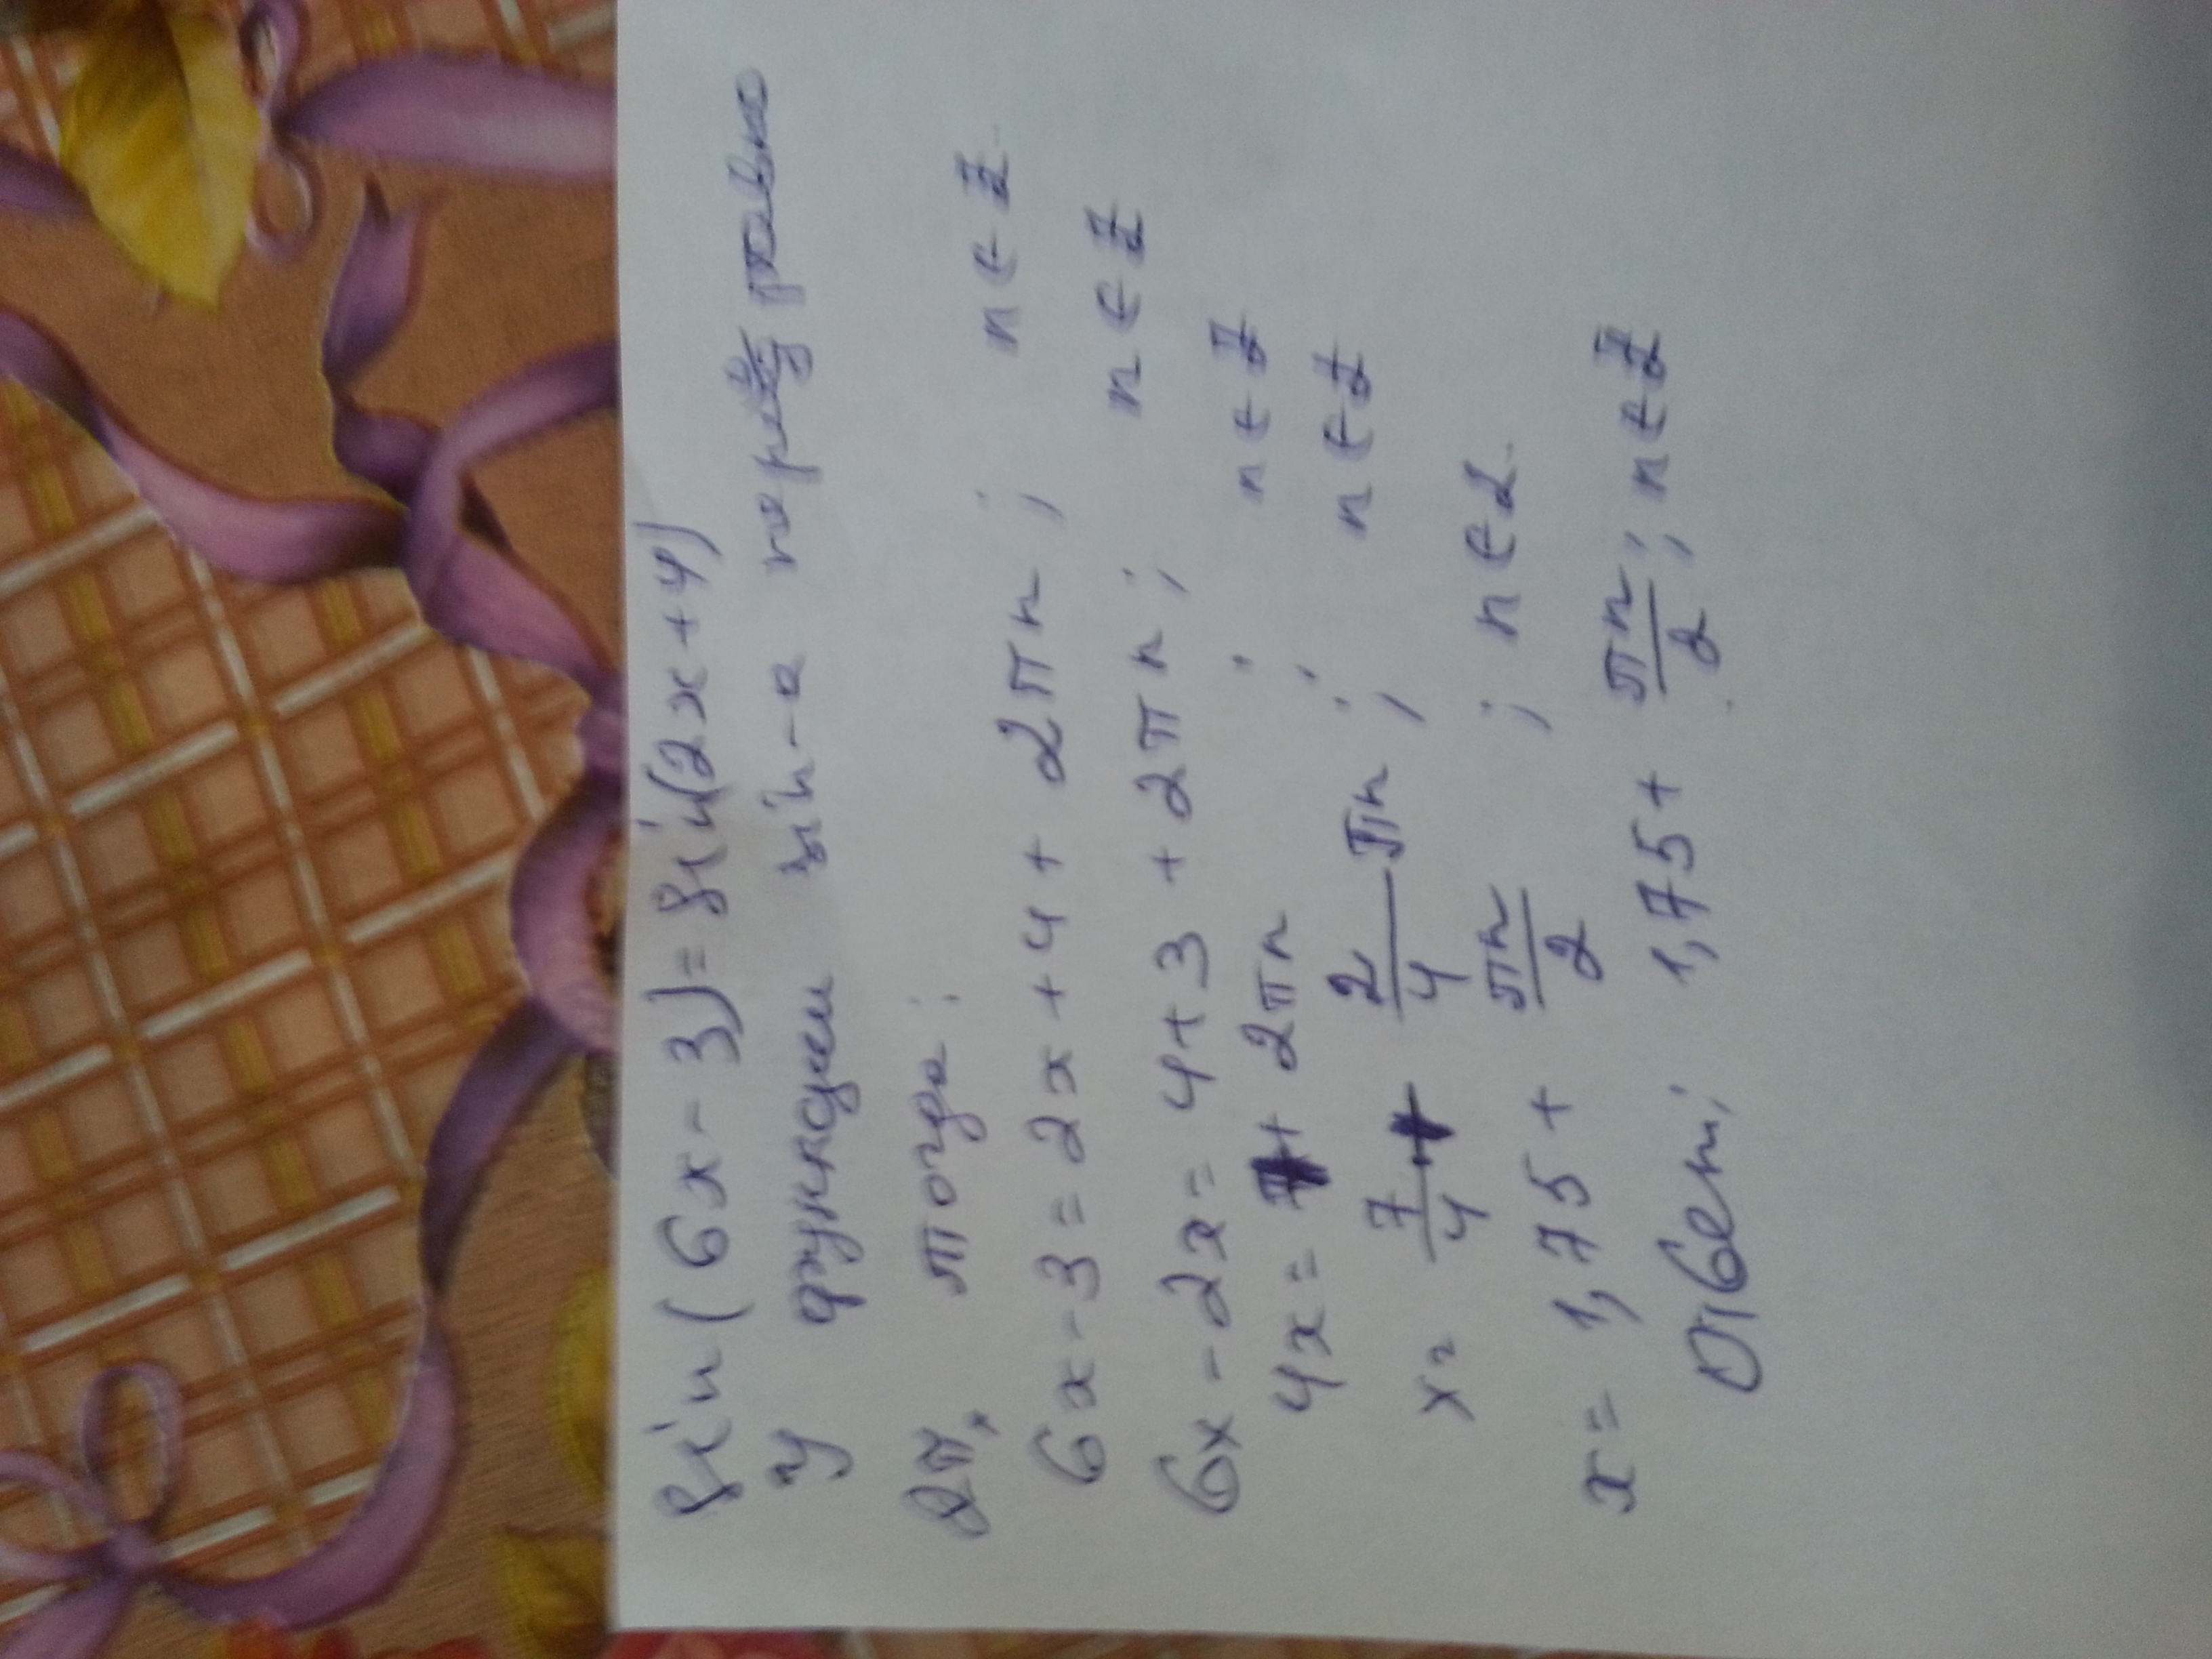 sin(6x-3)=sin(2x+4)
У функции sin-а период равно
2π, тогда:
6x-3=2x+4+2πn; n∈Z.
6x-2x=4+3+2πn; n∈Z
4x=7+2πn; n∈Z
x=7/4+2/4πn; n∈Z
x=1,75+πn/2; n∈Z.
Ответ; 1,75+πn/2; n∈Z